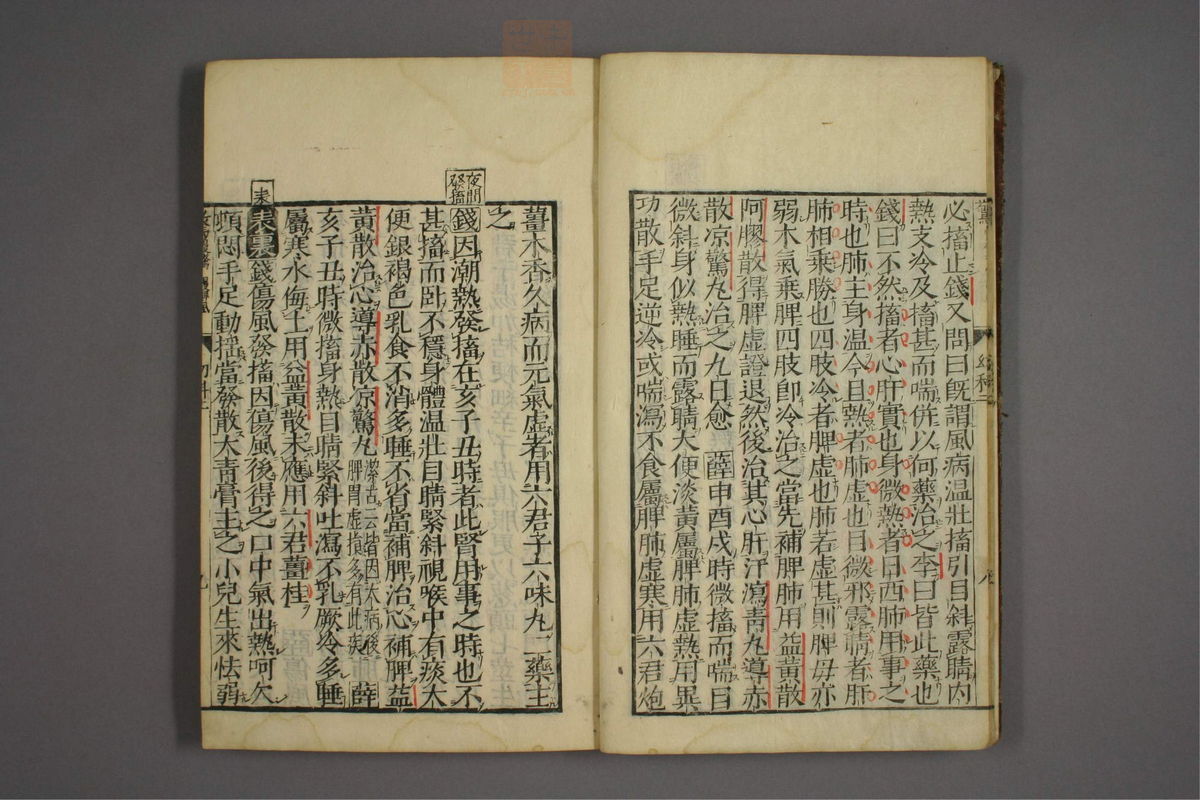 必搐止錢又問曰既謂風病温壯搐引目斜露睛内
熱支冷及搐甚而喘併以何藥治之李曰皆此藥也
錢曰不然搐者心肝實也身微熱者日西肺用事之
時也肺主身温今且熱者肺虚也目微邪露睛者肝
肺相乗勝也四肢冷者脾虚也肺若虚甚則脾母亦
弱木氣乗脾四肢卽冷治之當先補脾肺用益黃散
阿膠散得脾虚證退然後治其心肝汗瀉青丸導赤
散凉驚丸治之九日愈 薛申酉戌時微搐而喘目
微斜身似熱睡而露睛大便淡黃屬脾肺虚熱用異
功散手足逆冷或喘瀉不食屬脾肺虚寒用六君炮
薑木香久病而元氣虚者用六君子六味丸二藥主
之
夜間發搐
錢因潮熱發搐在亥子丑時者此腎用事之時也不
甚搐而卧不穩身體温壯目睛緊斜視喉中有痰大
便銀褐色乳食不消多睡不省當補脾治心補脾益
黃散治心導赤散凉驚丸潔古云皆因大病後脾胃虚損多有此疾 薛
亥子丑時微搐身熱目睛緊斜吐瀉不乳厥冷多睡
屬寒水侮土用益黃散未應用六君薑桂
表
表裏錢傷風發搐因傷風後得之口中氣出熱呵欠
頓悶手足動搖當發散大青膏主之小兒生來怯弱